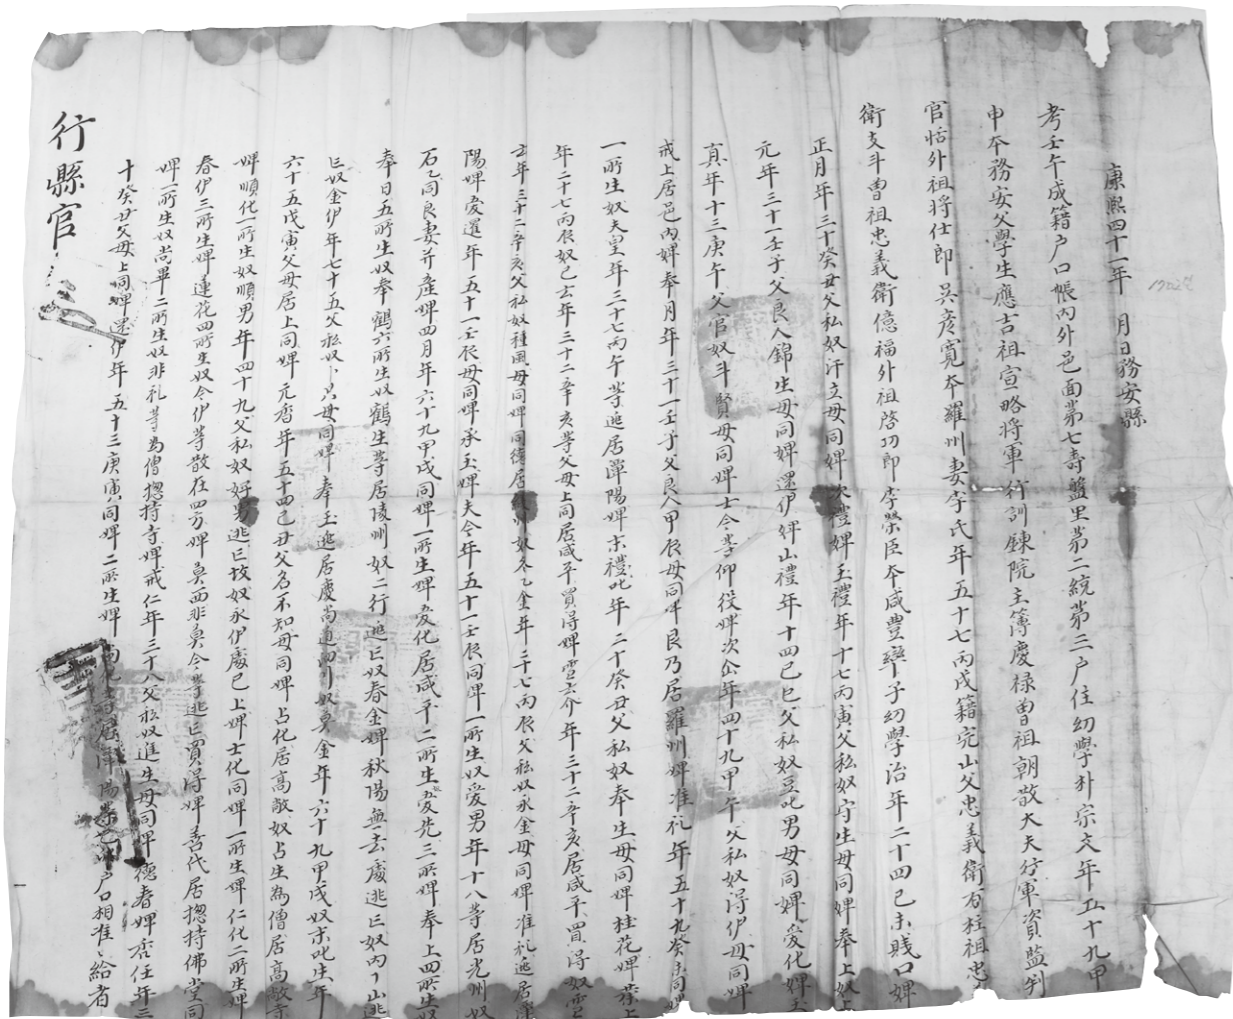 康熙四十一年 月日務安縣
考壬午成籍户口帳內外邑面第七壽盤里第二統第三户住幼學朴宗文年五十九甲
申本務安父學生應吉祖宣略將軍行訓鍊院主簿慶祿曾祖朝散大夫行軍資監判
官恬外祖將仕郎吳彦寬本羅州妻李氏年五十七丙戌籍完山父忠義衛有柱祖忠
衛支斗曾祖忠義衛億福外祖啓功郎李榮臣本咸豊率子幼學治年二十四己未賤口婢
正月年三十癸丑父私奴汗立母同婢次禮婢玉禮年十七丙寅父私奴守生母同婢奉上奴上
元年三十一壬子父良人錦生母同婢還伊婢山禮年十四己巳父私奴豆叱男母同婢愛化婢玉
真年十三庚午父官奴斗賢母同婢士今等仰役婢次仚年四十九甲午父私奴得伊母同婢
戒上居邑內婢奉月年三十一壬子父良人甲辰母同婢艮乃居羅州婢准礼年五十九癸未同婢
一所生奴天皇年三十七丙午等逃居潭陽婢末禮叱年二十癸丑父私奴奉生母同婢桂花婢葉上
年二十七丙辰奴己去年三十二辛亥等父母上同居咸平買得婢雪去介年三十二辛亥居咸平買得奴雪
去年三十二辛亥父私奴種風母同婢同德居 州奴冬乙金年二十七丙辰父私奴永金母同婢准礼逃居潭
陽婢愛還年五十一壬辰母同婢承玉婢夫今年五十一壬辰同婢一所生奴愛男年十八等居光州奴
石乙同良妻并産婢四月年六十九甲戌同婢一所生婢愛化居咸平二所生愛先三所婢奉上四所生奴
奉日五所生奴奉鶴六所生奴鶴生等居陵州奴二行逃亡奴春金婢秋陽無去處逃亡奴丙丁山逃
亡奴金伊年七十五父私奴卜只母同婢奉玉逃居慶尚道 奴莫金年六十九甲戌奴末叱生年
六十五戊寅父母居上同婢元香年五十四己丑父名不知母同婢占化居高敞奴占生為僧居高敞寺
婢順化一所生奴順男年四十九父私奴好男逃亡故奴永伊處己上婢士化同婢一所生婢仁化二所生婢
春伊三所生婢蓮花四所生奴今伊等散在四方婢莫西非莫今等逃亡買得婢善代居摠持佛堂同
婢一所生奴尚畢二所生奴非礼等為僧摠持寺婢戒仁年三十八父私奴進生母同婢德春婢唜任年三
十癸丑父母上同婢還伊年五十三庚寅同婢二所生婢 居潭陽等 户口相准給者
行縣官